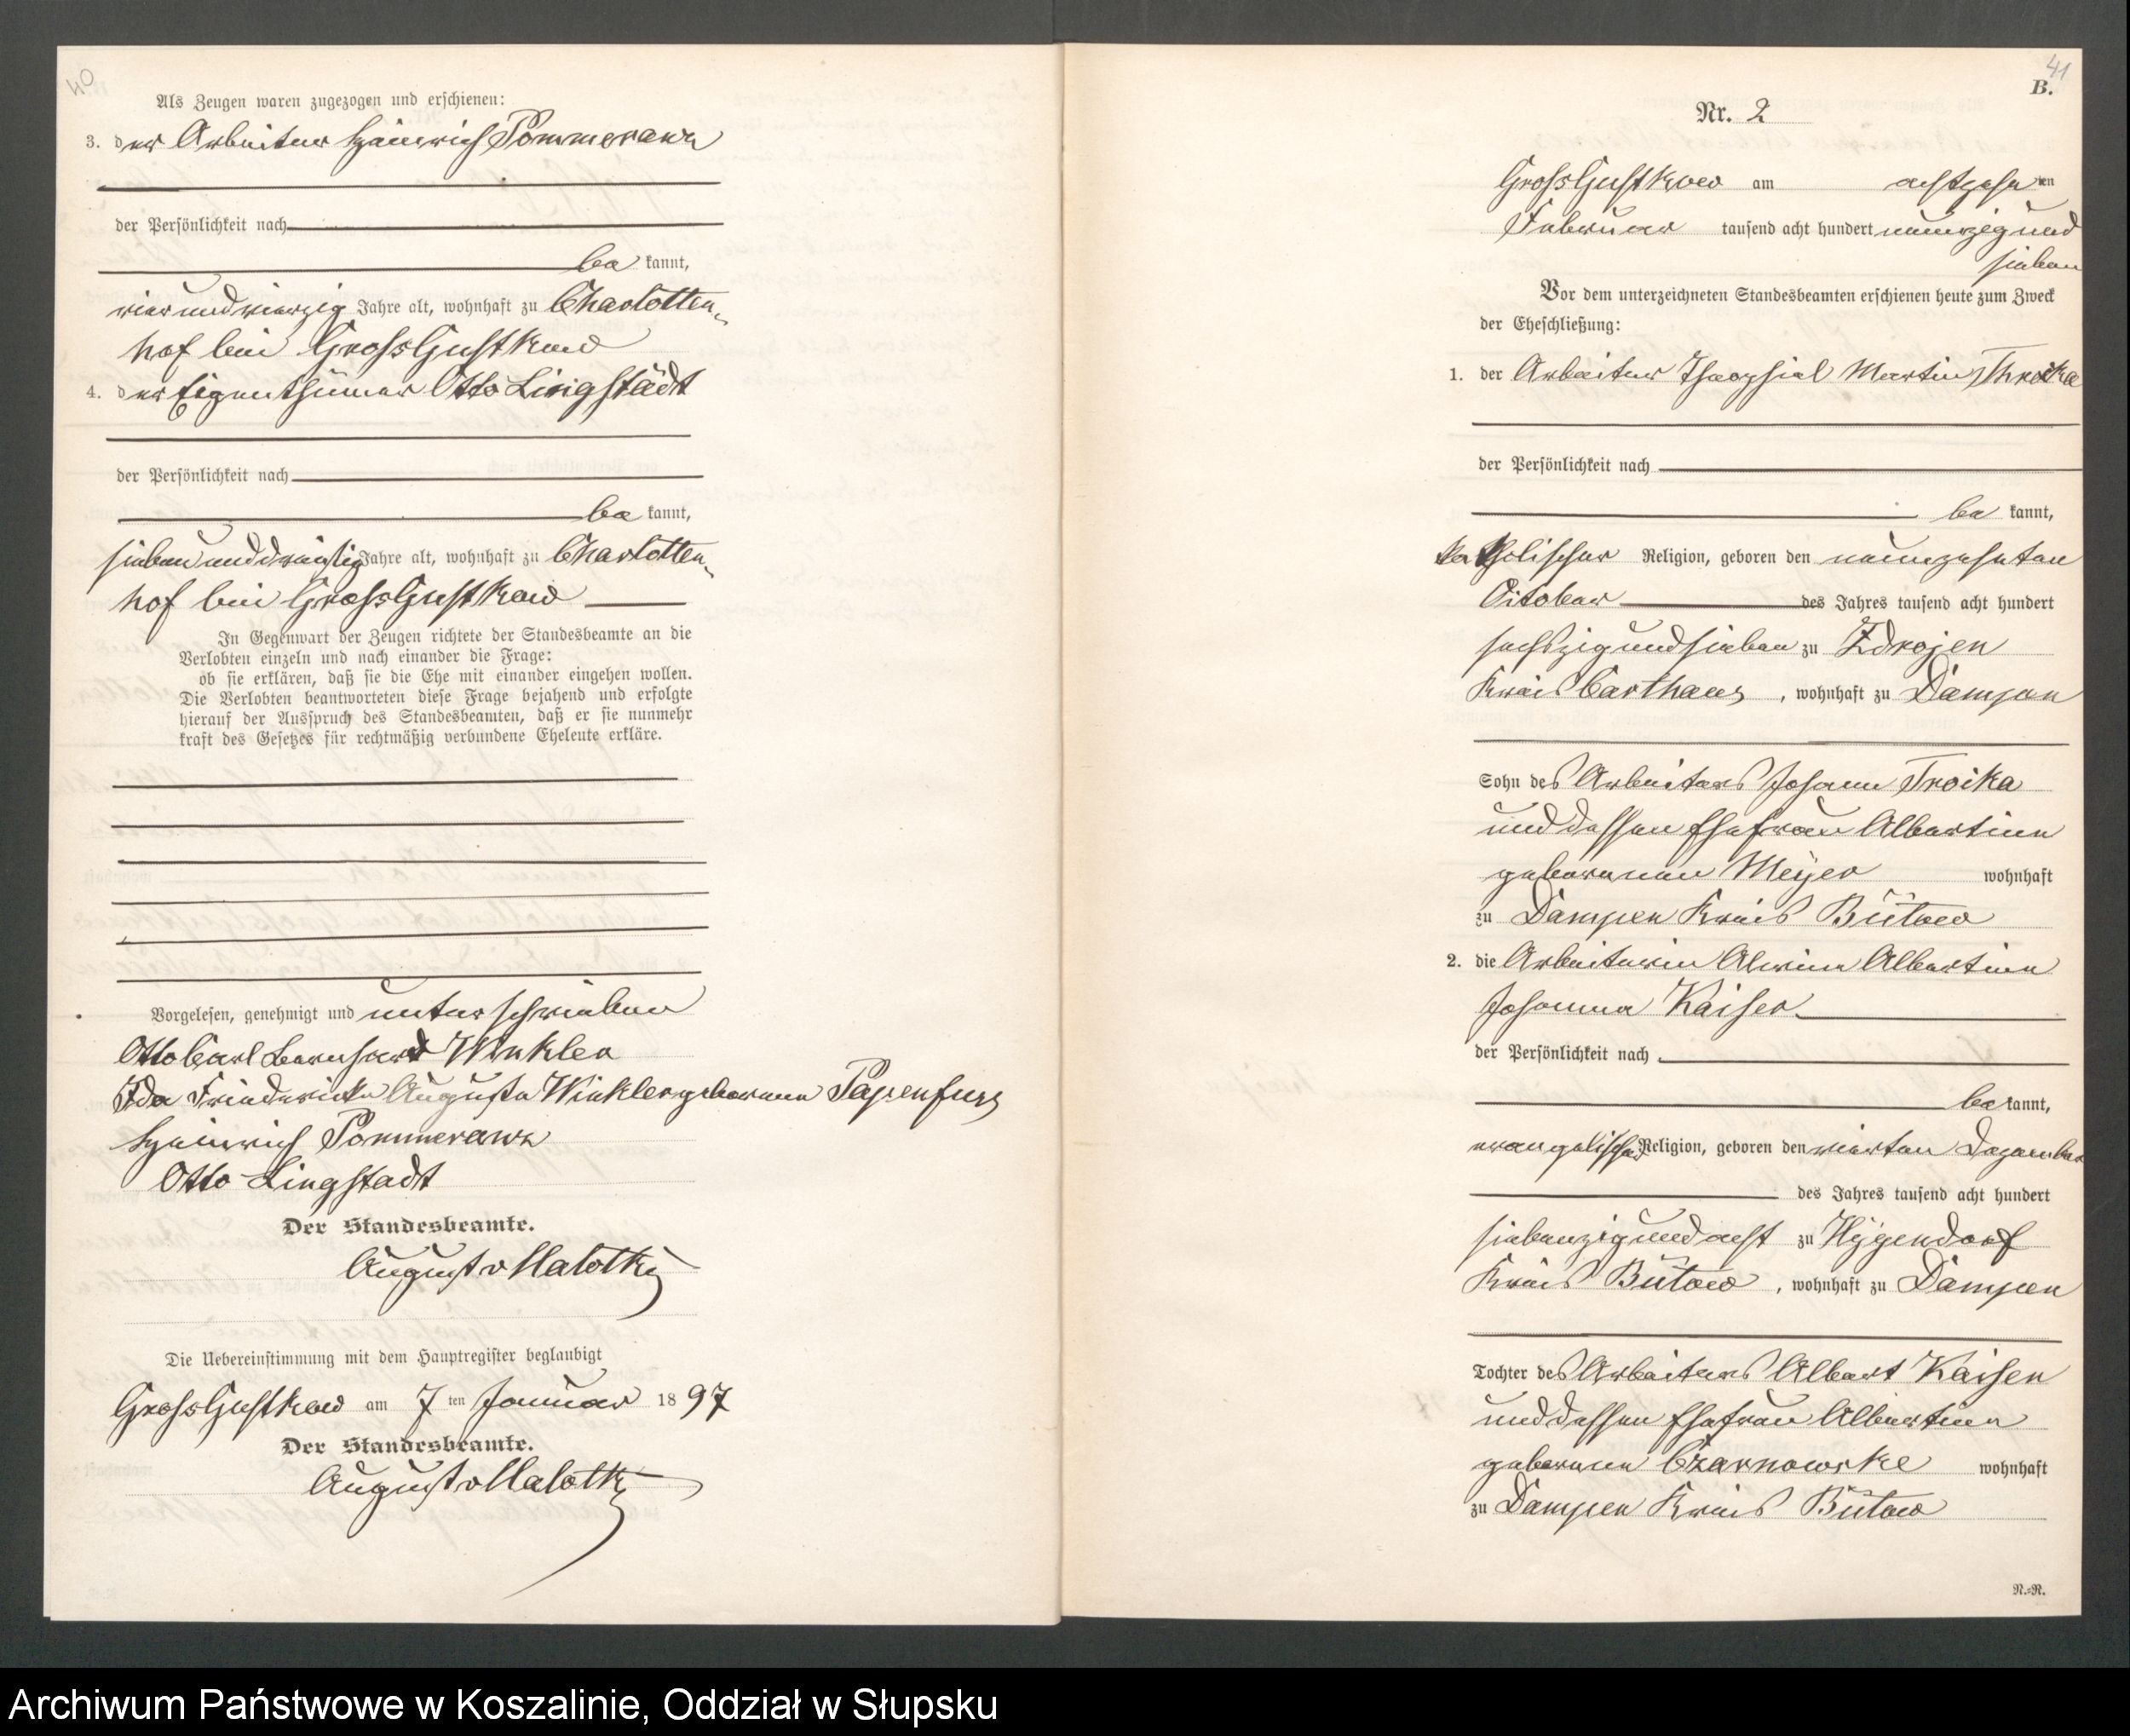 40
Als Zeugen waren zugezogen und erschienen:
3. der Arbeiter Heinrich Pommerenk
der Persönlichkeit nach
be kannt,
vier und vierzig Jahre alt, wohnhaft zu Charlotten-
hof bei Gross Gustkow
4. der Eigenthümer Otto Lingstädt
der Persönlichkeit nach
be kannt,
sieben und dreißig Jahre alt, wohnhaft zu Charlotten-
hof bei Gross Gustkow
In Gegenwart der Zeugen richtete der Standesbeamte an die
Verlobten einzeln und nach einander die Frage:
ob sie erklären, daß sie die Ehe mit einander eingehen wollen.
Die Verlobten beantworteten diese Frage bejahend und erfolgte
hierauf der Ausspruch des Standesbeamten, daß er sie nunmehr
kraft des Gesetzes für rechtmäßig verbundene Eheleute erkläre.
Vorgelesen, genehmigt und unterschrieben
Otto Carl Bernhard Winkler
Ida Friedericke Auguste Winkler geborene Papenfuss
Heinrich Pommerenk
Otto Lingstadt
Der Standesbeamte.
August v Malottky
Die Uebereinstimmung mit dem Hauptregister beglaubigt
Gross Gustkow am 7 ten Januar 18 97
Der Standesbeamte.
August v Malottky
41
B.
Nr. 2
Gross Gustkow am achtzehn ten
Februar tausend acht hundert neunzig und
sieben
Vor dem unterzeichneten Standesbeamten erschienen heute zum Zweck
der Eheschließung:
1. der Arbeiter Theophiel Martin Throika
der Persönlichkeit nach
be kannt,
katholischer Religion, geboren den neunzehnten
October des Jahres tausend acht hundert
sechszig und sieben zu Zdrojen
Kreis Carthaus, wohnhaft zu Dampen
Sohn des Arbeiters Johann Troika
und dessen Ehefrau Albertine
geborenen Meyer wohnhaft
zu Dampen Kreis Bütow
2. die Arbeiterin Alwine Albertine
Johanna Kaiser
der Persönlichkeit nach
be kannt,
evangelischer Religion, geboren den vierten Dezember
des Jahres tausend acht hundert
siebenzig und acht zu Hygendorf
Kreis Bütow, wohnhaft zu Dampen
Tochter des Arbeiters Albert Kaiser
und dessen Ehefrau Albertine
geborene Czarnowske wohnhaft
zu Dampen Kreis Bütow
N.-N.
Archiwum Państwowe w Koszalinie, Oddział w Słupsku